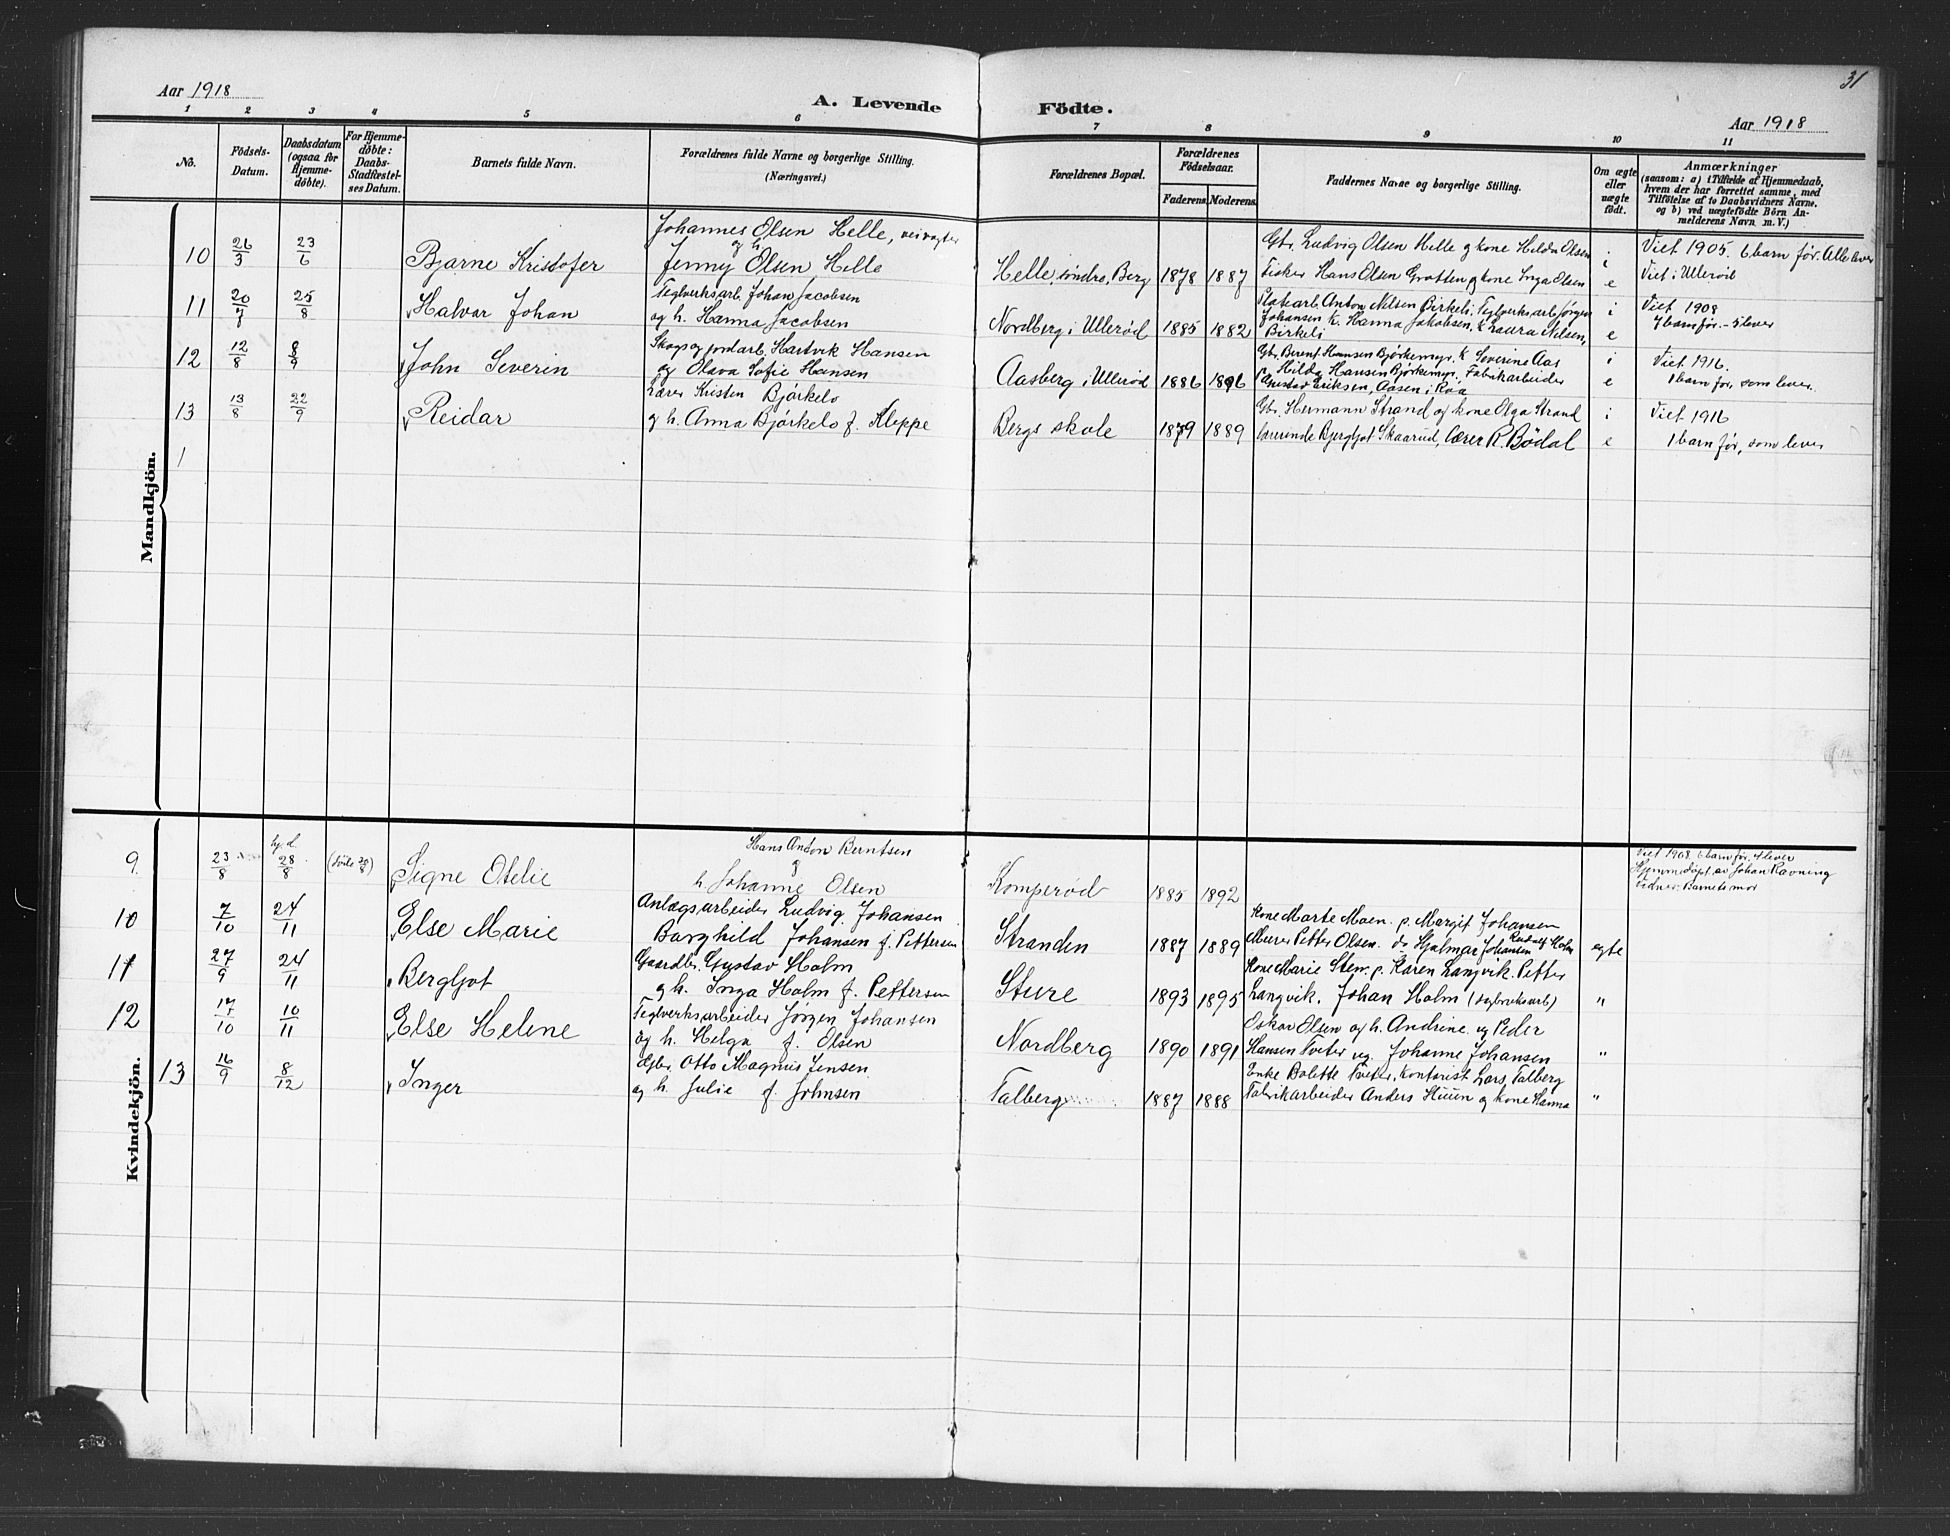 31
Aar 1918
A. Levende Födte.
Aar 1918
1 2 3 4 5 6 7 8 9 10 11
No.
Födsels-
Datum.
Daabsdatum
(ogsaa for
Hjemme-
döbte).
For Hjemme-
döbte:
Daabs-
Stadfæstel-
ses Datum.
Barnets fulde Navn.
Forældrenes fulde Navne og borgerlige Stilling.
(Næringsvei.)
Forældrenes Bopæl.
Forældrenes
Födselsaar.
Faderens. Moderens.
Faddernes Navne og borgerlige Stilling.
Om ægte
eller
uægte
födt.
Anmærkninger
(saasom: a) i Tilfælde af Hjemmedaab,
hvem der har forrettet samme, med
Tilföielse af to Daabsvidners Navne.
og b) ved uægtefödte Börn An-
melderens Navn m. V.)
Mandkjön.
10 26/3 23/6 Bjarne Kristofer
Johannes Olsen Helle, veivogter
og h.
Jenny Olsen Helle
Helle, söndre, Berg 1878 1887
Gbr. Ludvig Olsen Helle og kone Hilda Olsen
Fisker Hans Olsen Grotten og kone Inga Olsen
i
i
e
Viet 1905. 6 barn før. Alle lever
Viet i Ulleröd
11 20/7 25/8 Halvar Johan
Teglverksarb. Johan Jacobsen
og h. Hanna Jacobsen
Nordberg i Ullerød 1885 1882
Anton Nilsen Birkeli, Teglverksarb Jørgen
Johansen K. Hanna Jakobsen, K Laura Nilsen,
Birkeli
i
e
Viet 1908
7 barn før. - 5 lever
12 12/8 8/9 John Severin
Skogs og jordarb. Hartvik Hansen
og Olava Sofie Hansen
Aasberg i Ullerød 1886 1896
Gbr. Berent Hansen Bjørkemyr. K Severine Aas
Hilda Hansen Bjørkemyr. Fabrikarbeider
Gustav Eriksen, Aasen i Röa
i
e
Viet 1916.
1 barn før, som lever.
13 13/8 22/9 Reidar
Lærer Kristen Bjørkelo
og h. Anna Bjørkelo f. Kleppe
Bergs skole 1879 1889
Gbr. Hermann Strand og kone Olga Strand
Lærerinde Bergljot Skaarud, Lærer R. Bödal
i
e
Viet 1916
1 barn før, som lever
1
Kvindekjön.
9. 23/8 hj.d. 28/8 Signe Otelie
Hans Anton Berntsen
g
h. Johanne Olsen
Komperød 1885 1892
Viet 1908. 6 barn før. 4 lever
Hjemmedøpt av Johan Ravning
Vidner: Barnets mor
10 7/10 24/11 Else Marie
Anlægsarbeider Ludvig Johansen
Borghild Johansen f. Pettersen
Stranden 1887 1889
Kone Marte Moen. p. Margit Johansen
Murer Petter Olsen. do Hjalmar Johansen Rudolf Holm
egte
11 27/9 24/11 Bergljot
Gaardbr. Gustav Holm
og h. Inga Holm f. Pettersen
Sture 1893 1895
Kone Marie Sten. p. Karen Langvik. Petter
Langvik. Johan Holm (sagbruksarb)
"
12 17/10 10/11 Else Helene
Teglverksarbeider Jørgen Johansen
og h. Helga f. Olsen
Nordberg 1890 1891
Oskar Olsen og h. Andrine og Peder
Hansen Tveter og Johanne Johansen
"
13 16/9 8/12 Inger
Gbr. Otto Magnus Jensen
og h. Julie f. Johnsen
Talberg 1887 1888
Enke Bolette Tveter, Kontorist Lars Talberg
Fabrikarbeider Anders Huun og kone Hanna
"